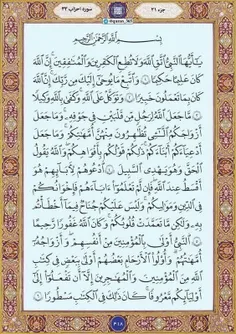 جزء ۲۱
سوره احزاب ۳۳
بِسْمِ اللَّهِ الرَّحْمَٰنِ الرَّحِيمِ
يَا أَيُّهَا النَّبِيُّ اتَّقِ اللَّهَ وَلَا تُطِعِ الْكَافِرِينَ وَالْمُنَافِقِينَ إِنَّ اللَّهَ
كَانَ عَلِيمًا حَكِيمًا ۱ وَاتَّبِعْ مَا يُوحَىٰ إِلَيْكَ مِنْ رَبِّكَ إِنَّ اللَّهَ
كَانَ بِمَا تَعْمَلُونَ خَبِيرًا ۲ وَتَوَكَّلْ عَلَى اللَّهِ وَكَفَىٰ بِاللَّهِ وَكِيلًا
۳ مَا جَعَلَ اللَّهُ لِرَجُلٍ مِنْ قَلْبَيْنِ فِي جَوْفِهِ وَمَا جَعَلَ
أَزْوَاجَكُمُ اللَّائِي تُظَاهِرُونَ مِنْهُنَّ أُمَّهَاتِكُمْ وَمَا جَعَلَ
أَدْعِيَاءَكُمْ أَبْنَاءَكُمْ ذَٰلِكُمْ قَوْلُكُمْ بِأَفْوَاهِكُمْ وَاللَّهُ يَقُولُ
الْحَقَّ وَهُوَ يَهْدِي السَّبِيلَ ۴ ادْعُوهُمْ لِآبَائِهِمْ هُوَ
أَقْسَطُ عِنْدَ اللَّهِ فَإِنْ لَمْ تَعْلَمُوا آبَاءَهُمْ فَإِخْوَانُكُمْ
فِي الدِّينِ وَمَوَالِيكُمْ وَلَيْسَ عَلَيْكُمْ جُنَاحٌ فِيمَا أَخْطَأْتُمْ
بِهِ وَلَٰكِنْ مَا تَعَمَّدَتْ قُلُوبُكُمْ وَكَانَ اللَّهُ غَفُورًا رَحِيمًا
۵ النَّبِيُّ أَوْلَىٰ بِالْمُؤْمِنِينَ مِنْ أَنْفُسِهِمْ وَأَزْوَاجُهُ
أُمَّهَاتُهُمْ وَأُولُو الْأَرْحَامِ بَعْضُهُمْ أَوْلَىٰ بِبَعْضٍ فِي كِتَابِ
اللَّهِ مِنَ الْمُؤْمِنِينَ وَالْمُهَاجِرِينَ إِلَّا أَنْ تَفْعَلُوا إِلَىٰ
أَوْلِيَائِكُمْ مَعْرُوفًا كَانَ ذَٰلِكَ فِي الْكِتَابِ مَسْطُورًا ۶
۴۱۸